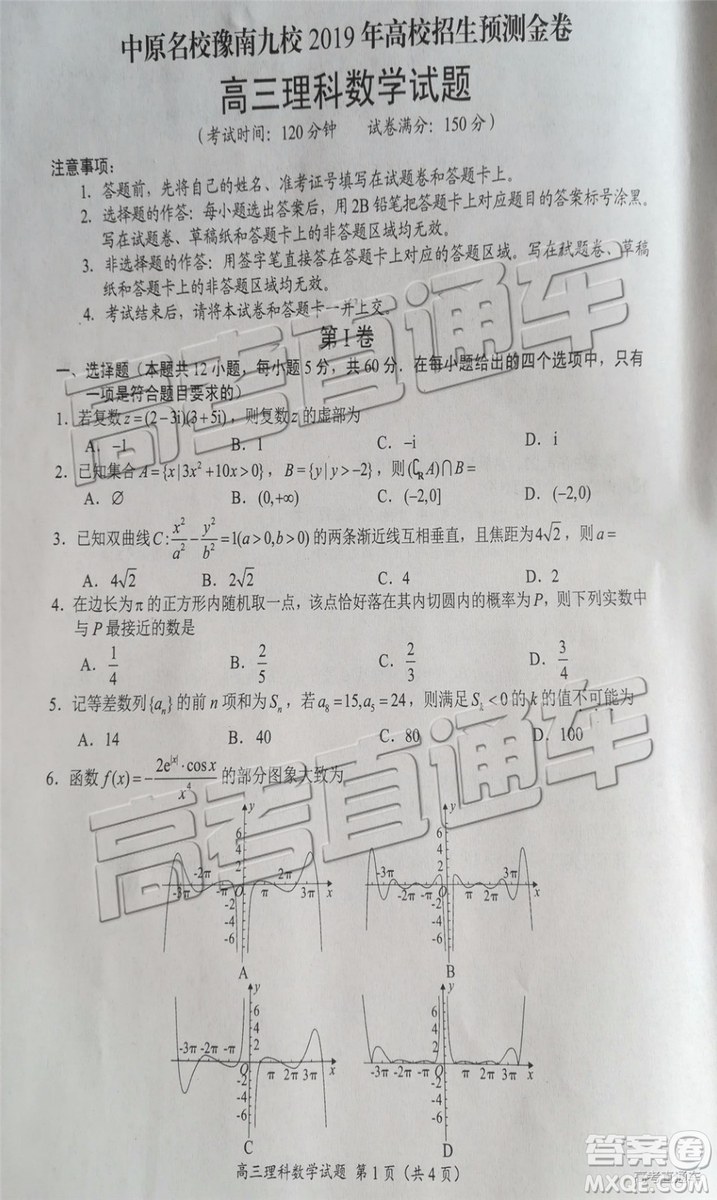 中原名校豫南九校2019年高校招生预测金卷
高三理科数学试题
(考试时间：120分钟 试卷满分：150分)
注意事项：
1. 答题前，先将自己的姓名、准考证号填写在试题卷和答题卡上。
2. 选择题的作答：每小题选出答案后，用2B铅笔把答题卡上对应题目的答案标号涂黑。
写在试题卷、草稿纸和答题卡上的非答题区域均无效。
3. 非选择题的作答：用签字笔直接答在答题卡上对应的答题区域。写在试题卷、草稿
纸和答题卡上的非答题区域均无效。
4. 考试结束后，请将本试卷和答题卡一并上交。
第Ⅰ卷
一、选择题（本题共12小题，每小题5分，共60分．在每小题给出的四个选项中，只有
一项是符合题目要求的）
1. 若复数z=(2-3i)(3+5i)，则复数z的虚部为
A. -1 B. 1 C. -i D. i
2. 已知集合A={x|3x²+10x>0}，B={y|y>-2}，则(∁RA)∩B=
A. ∅ B. (0,+∞) C. (-2,0] D. (-2,0)
3. 已知双曲线C: x²/a² - y²/b² =1(a>0,b>0)的两条渐近线互相垂直，且焦距为4√2，则a=
A. 4√2 B. 2√2 C. 4 D. 2
4. 在边长为π的正方形内随机取一点，该点恰好落在其内切圆内的概率为P，则下列实数中
与P最接近的数是
A. 1/4 B. 2/5 C. 2/3 D. 3/4
5. 记等差数列{aₙ}的前n项和为Sₙ，若a₈=15,a₅=24，则满足Sₖ<0的k的值不可能为
A. 14 B. 40 C. 80 D. 100
6. 函数f(x)=-2e^|x|·cosx/x⁴的部分图象大致为
y 6 4 2 -3π -2π -π O π 2π 3π x -2 -4 -6
A
y 6 4 2 -3π -2π -π O π 2π 3π x -2 -4 -6
B
y 6 4 2 -3π -2π -π O π 2π 3π x -2 -4 -6
C
y 6 4 2 -3π -2π -π O π 2π 3π x -2 -4 -6
D
高三理科数学试题 第1页（共4页）
高考直通车
高考直通车
高考直通车
答案圈
MXQE.COM